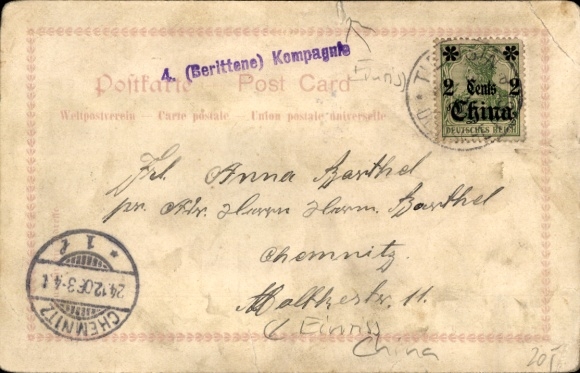 4. (Berittene) Kompagnie
Postkarte Post Card
Weltpostverein — Carte postale — Union postale universelle
2 Cents 2
China
DEUTSCHES REICH
Frl. Anna Barthel
pr. Adr. Herrn Herm. Barthel
Chemnitz.
Moltkestr. 11.
China
* 1 f
24.12.06.3-4.N.
CHEMNITZ